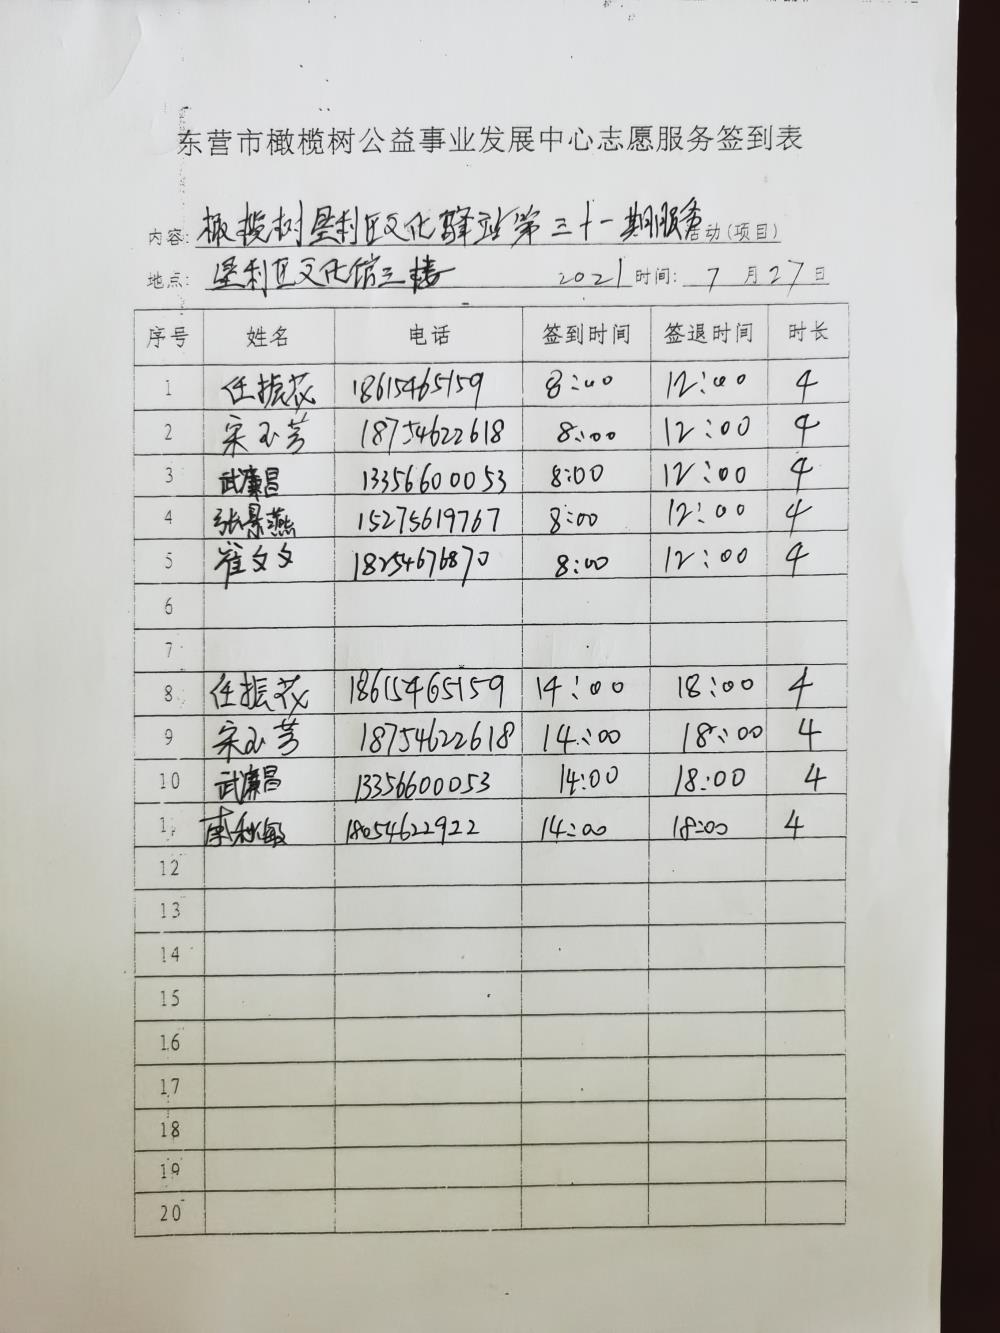 东营市橄榄树公益事业发展中心志愿服务签到表
内容: 橄榄树垦利区文化驿站第三十一期服务活动(项目)
地点: 垦利区文化馆三楼 2021 时间: 7 月 27 日
序号 姓名 电话 签到时间 签退时间 时长
1 任振花 18615465159 8:00 12:00 4
2 宋玉芳 18754622618 8:00 12:00 4
3 武廉昌 13356600053 8:00 12:00 4
4 张景燕 15275619767 8:00 12:00 4
5 崔文文 18254676870 8:00 12:00 4
6
7
8 任振花 18615465159 14:00 18:00 4
9 宋玉芳 18754622618 14:00 18:00 4
10 武廉昌 13356600053 14:00 18:00 4
11 秋敏 18054622922 14:00 18:00 4
12
13
14
15
16
17
18
19
20